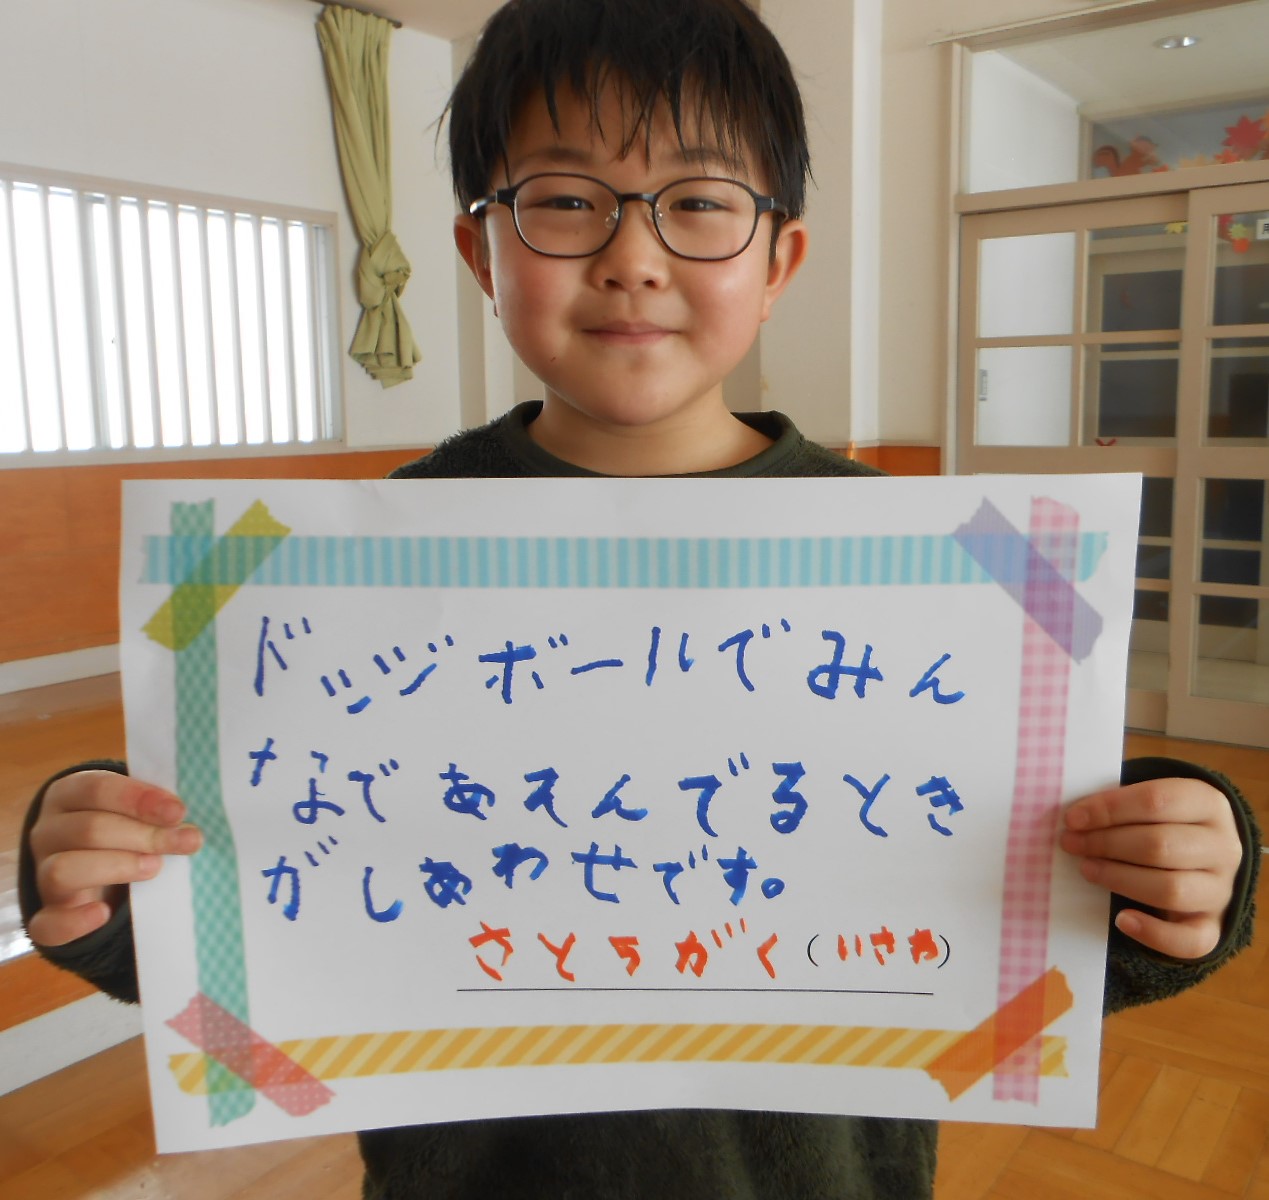 ドッジボールでみん
なであそんでるとき
がしあわせです。
さとうがく(いさわ)